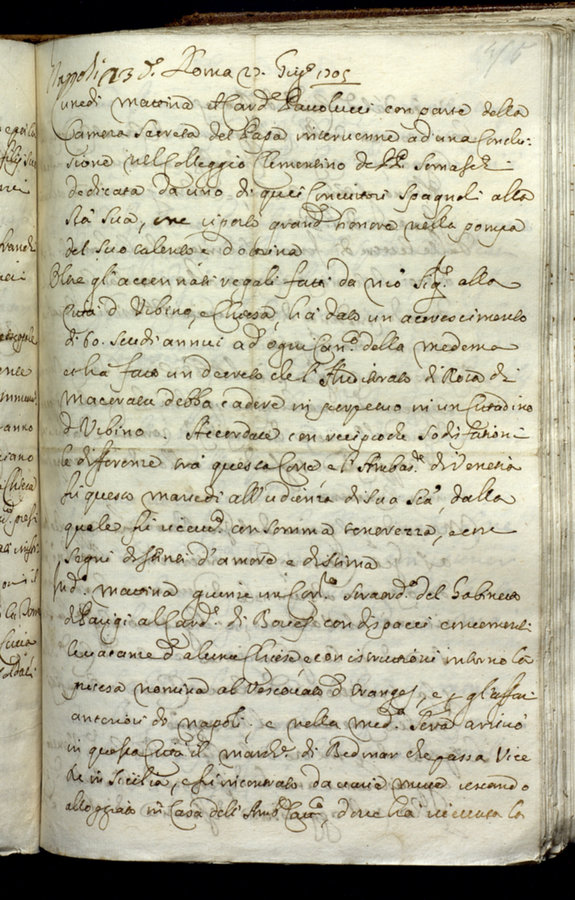 Nappoli 23 d.º Roma 27. Giug.º 1705
Lunedi mattina il Card.e Paulucci con parte della
Camera Secreta del Papa intervenne ad una Conclu-
sione nel Collegio Clementino de PP. Somaschi
dedicata da uno di quei Convittori Spagnoli alla
Stà Sua, che riportò grand'honore nella pompa
del suo talento e dottrina
Oltre gl'accennati regali fatti da N.ro Sig.re alla
Città d'Urbino, e Chiesa, hà dato un accrescimento
di 60. Scudi annui ad ogni Can.co della medema
et hà fatto un decreto che l'Auditorato di Rota di
Macerata debba cadere in perpetuo in un Cittadino
d'Urbino. Accordate con reciproche sodisfationi
le differenze trà questa Corte e l'Ambas.re di Venetia
fù questo martedi all'udienza di Sua Stà, dalla
quale fù ricevuto con somma tenerezza, e con
segni distinti d'amore e di stima
mattina giunse un Cor.re straord.º del Gabinetto
di Parigi al Card.e di con dispacci concernenti
le vacanze d'alcune Chiese e con istruzioni intorno la
nomina al Vescovato d' e p gl'affari
anteriori di Napoli. e nella med.ma sera arrivò
in questa Città il March.e di Bedmar che passa Vice
Rè in Sicilia, e fù incontrato da varie mute restando
alloggiato in Casa dell'Amb.re dove hà ricevuto la